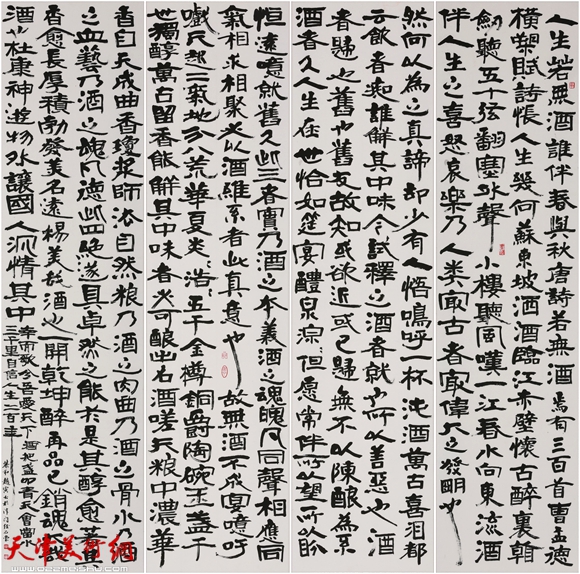 人生若無酒誰伴春與秋唐詩若無酒焉有三百首曹孟德
橫槊賦詩悵人生幾何蘇東坡洒酒臨江赤壁懷古醉裏朝
劍聽五十弦翻塞外聲小樓聽風嘆一江春水向東流酒
伴人生之喜怒哀樂乃人类最古老最偉大之發明也
然何以為之真諦卻少有人悟嗚呼一杯沌酒萬古喜泪都
云飲者痴誰解其中味今試釋之酒者就也所以善惡也
者歸也舊也舊友故知或欲近或已歸無不以陳釀為系
酒者久人生在世恰如筵宴醴泉淙但愿常伴所望所盼
恒遠噫就舊久此三者實乃酒之本義酒之魂魄凡同聲相應同
氣相求相聚光以酒維系者此真意也故無酒不成宴噫吁
嚱天就二氣地分八荒華夏炎浩五千金樽銅爵陶碗玉盞千
世獨醇萬古留香能解其中味者光可釀出名酒嗟天粮中濃華
香自天成曲香瓊漿師法自然粮乃酒之肉曲乃酒之骨水
之血藝乃酒之魂凡德此四絕遂具卓然之能於是其醇愈
香愈長厚積勃發美名遠楊美哉酒也一開乾坤醉再品已銷魂
酒也杜康神遊物外讓國人沉情其中
三千里自信人生二百年
天津美术網
www.022meishu.com